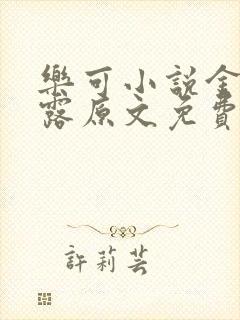 樂可小說金
露原文免費
許莉芸